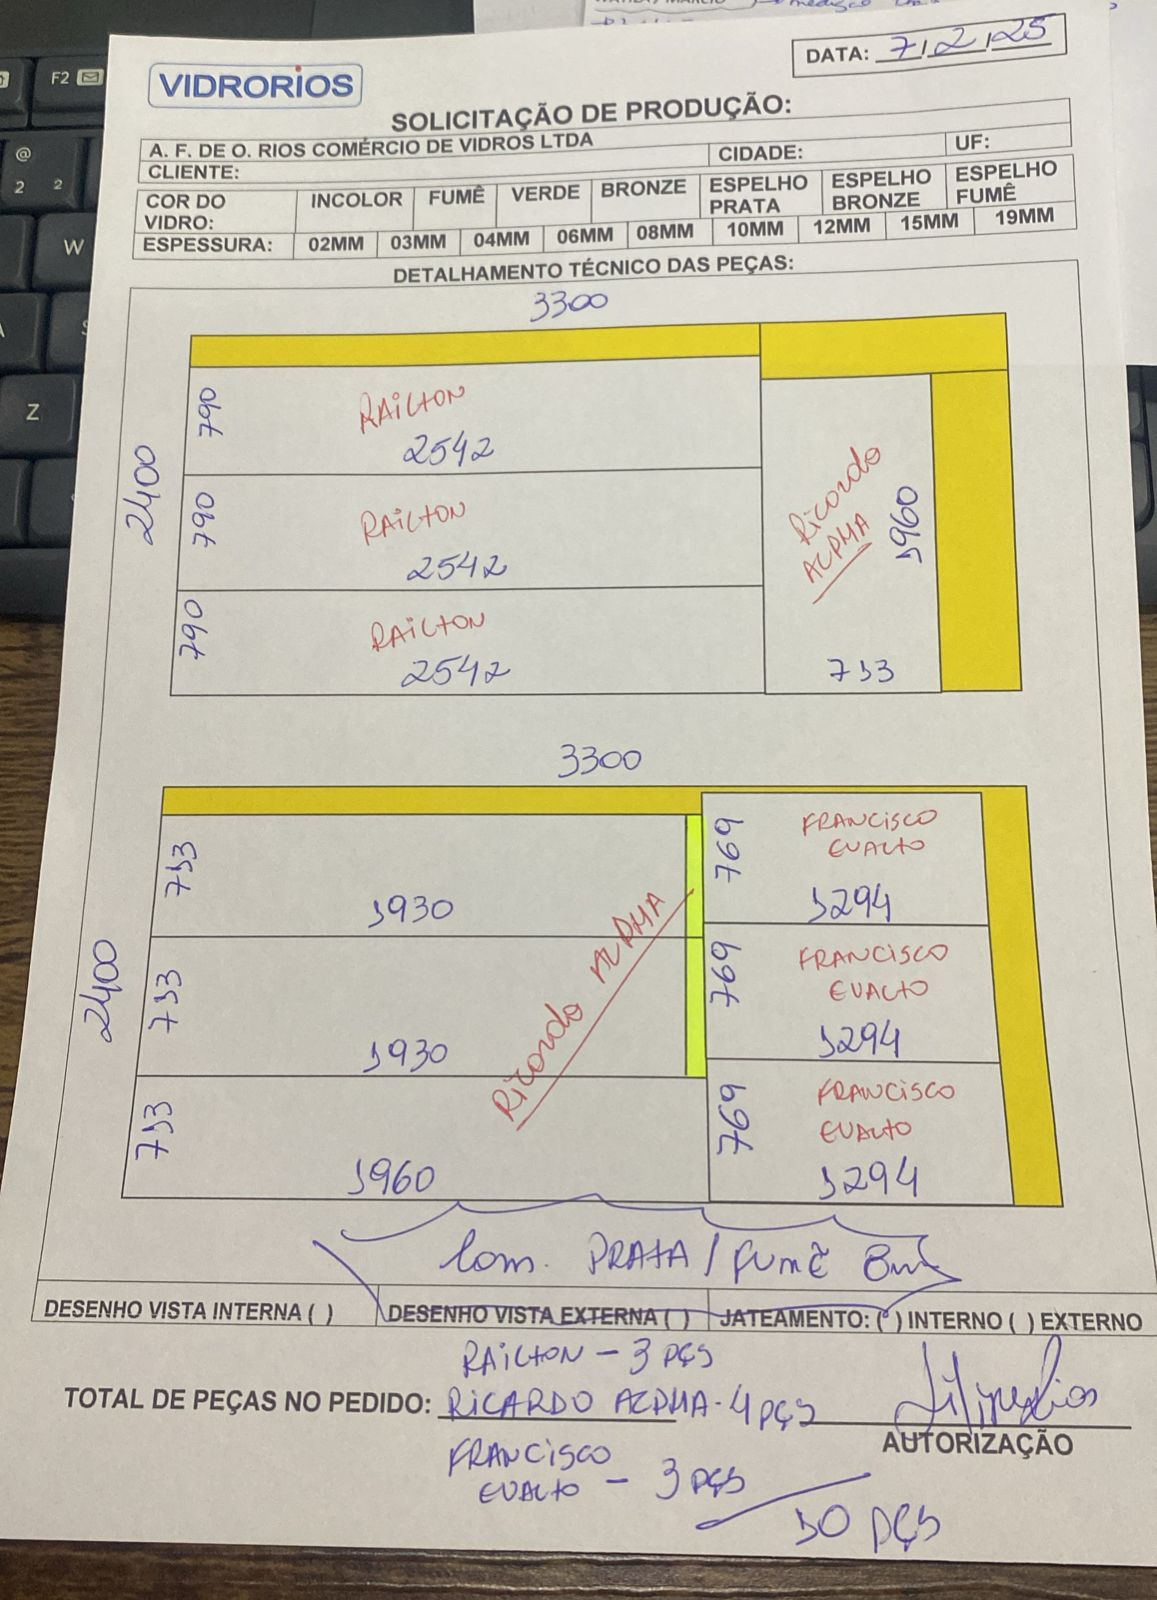 DATA: 7/2/25
VIDRORIOS
SOLICITAÇÃO DE PRODUÇÃO:
A. F. DE O. RIOS COMÉRCIO DE VIDROS LTDA
CLIENTE:
CIDADE:
UF:
COR DO VIDRO:
INCOLOR
FUMÊ
VERDE
BRONZE
ESPELHO PRATA
ESPELHO BRONZE
ESPELHO FUMÊ
ESPESSURA:
02MM
03MM
04MM
06MM
08MM
10MM
12MM
15MM
19MM
DETALHAMENTO TÉCNICO DAS PEÇAS:
3300
2400
790
RAILTON
2542
790
RAILTON
2542
790
RAILTON
2542
Ricardo
ALPHA
1960
713
3300
2400
713
1930
713
1930
713
1960
Ricardo ALPHA
769
FRANCISCO
EVALTO
1294
769
FRANCISCO
EVALTO
1294
769
FRANCISCO
EVALTO
1294
Com. PRATA / FUMÊ 8mm
DESENHO VISTA INTERNA ( )
DESENHO VISTA EXTERNA ( )
JATEAMENTO: ( ) INTERNO ( ) EXTERNO
RAILTON - 3 PÇS
TOTAL DE PEÇAS NO PEDIDO: RICARDO ALPHA - 4 PÇS
AUTORIZAÇÃO
FRANCISCO
EVALTO - 3 PÇS
10 PÇS
F2
@
2 2
W
Z